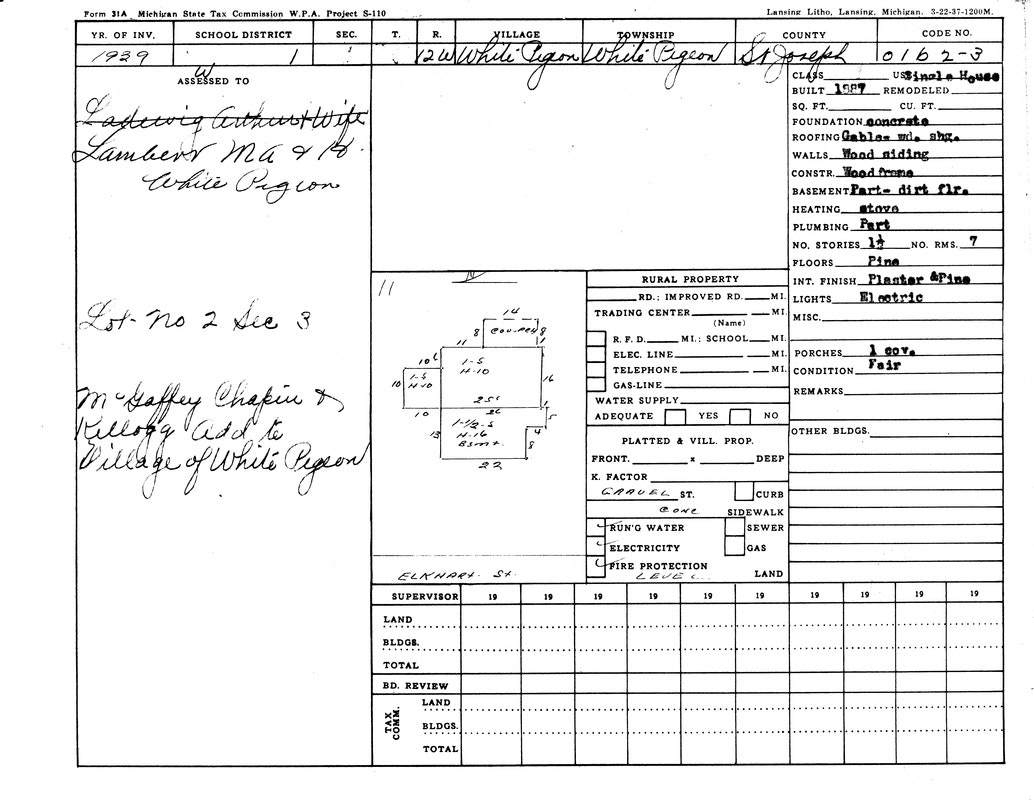 Form 31A Michigan State Tax Commission W.P.A. Project S-110
Lansing Litho, Lansing, Michigan. 3-22-37-1200M.
YR. OF INV. SCHOOL DISTRICT SEC. T. R. VILLAGE TOWNSHIP COUNTY CODE NO.
1939 1 12W White Pigeon White Pigeon St Joseph 0162-3
ASSESSED TO
Ladewig Arthur & Wife
Lambert Ma &
White Pigeon
Lot- No 2 Sec 3
McGaffey Chapin &
Killogg Add to
Village of White Pigeon
11
N
14
8 COV. PCH 8
11 1
10 1-S
H-10
16
1-S
H-10
10
10
26
1
1-1/2-S
H-16
Bsmt.
13
5
4
8
22
ELKHART. St.
RURAL PROPERTY
RD.; IMPROVED RD. MI.
TRADING CENTER MI.
(Name)
R. F. D. MI.; SCHOOL MI.
ELEC. LINE MI.
TELEPHONE MI.
GAS-LINE
WATER SUPPLY
ADEQUATE YES NO
PLATTED & VILL. PROP.
FRONT. x DEEP
K. FACTOR
GRAVEL ST. CURB
CONC SIDEWALK
RUN'G WATER SEWER
ELECTRICITY GAS
FIRE PROTECTION
LEVEL LAND
CLASS US Single House
BUILT 1887 REMODELED
SQ. FT. CU. FT.
FOUNDATION concrete
ROOFING Gable- wd. shg.
WALLS Wood siding
CONSTR. Wood frame
BASEMENT Part- dirt flr.
HEATING stove
PLUMBING Part
NO. STORIES 1½ NO. RMS. 7
FLOORS Pine
INT. FINISH Plaster &Pine
LIGHTS Electric
MISC.
PORCHES 1 cov.
CONDITION Fair
REMARKS
OTHER BLDGS.
SUPERVISOR 19 19 19 19 19 19 19 19 19 19
LAND
BLDGS.
TOTAL
BD. REVIEW
TAX COMM.
LAND
BLDGS.
TOTAL